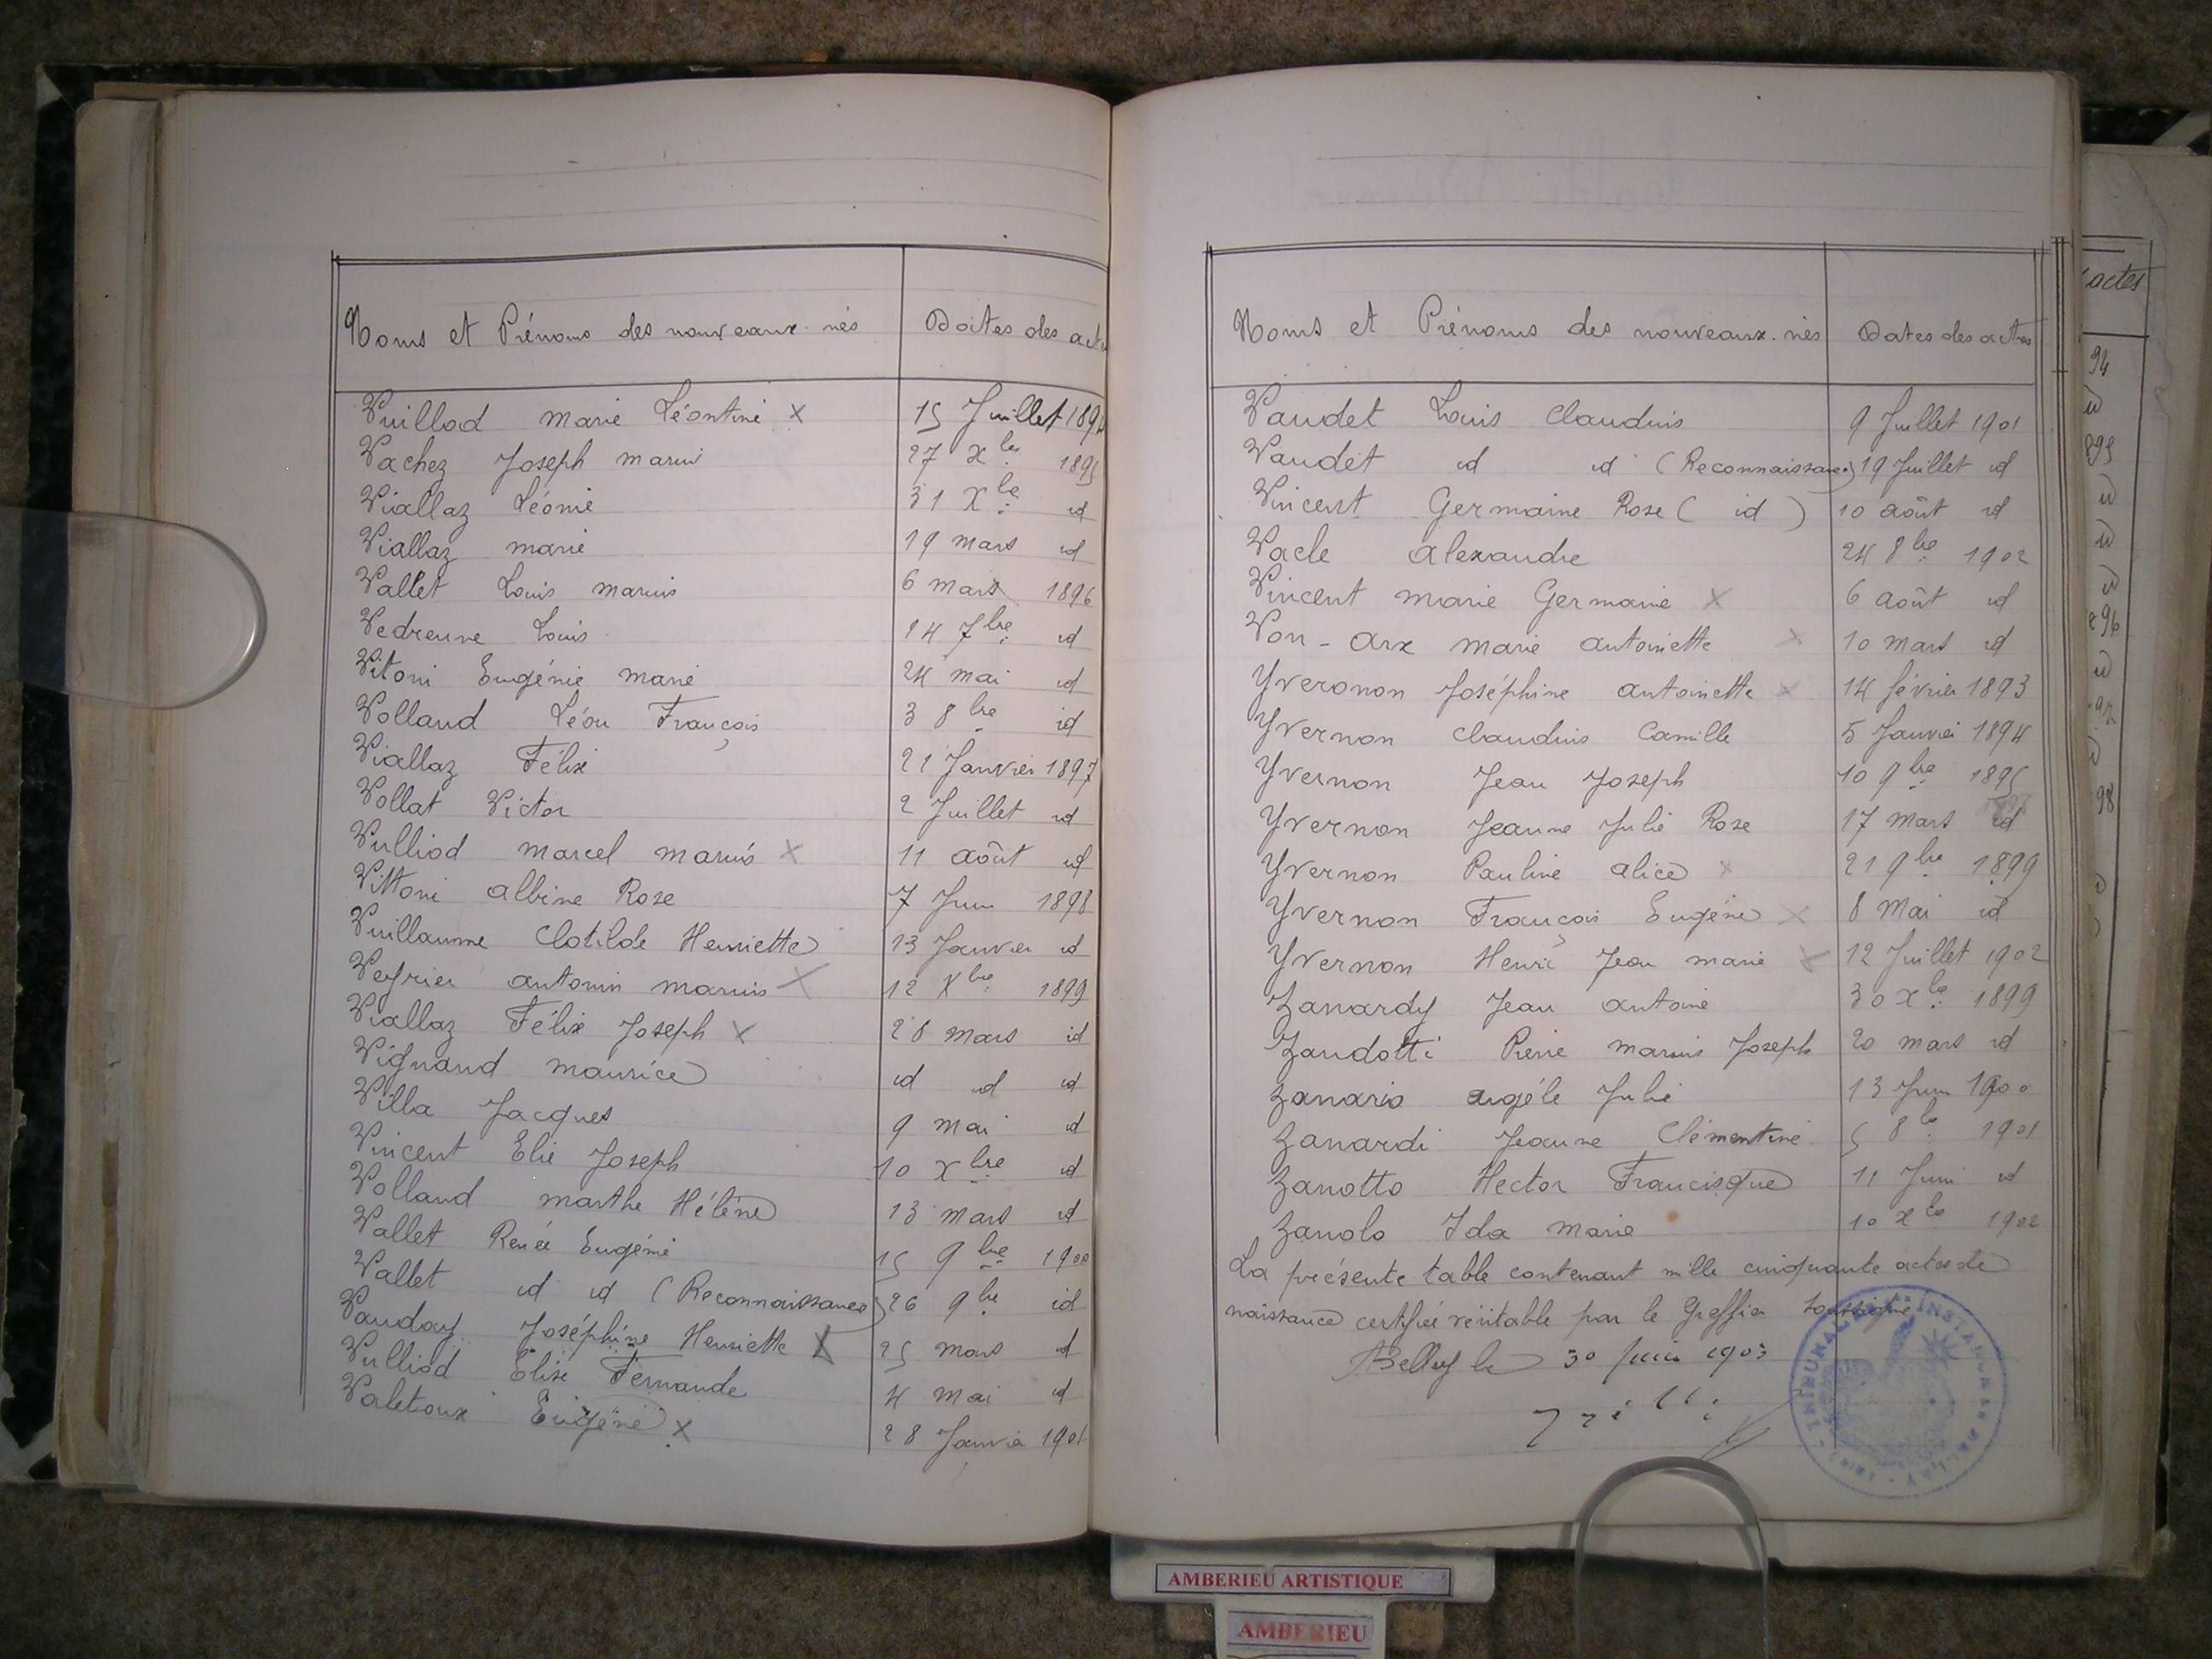 Noms et Prénoms des nouveaux-nés Dates des actes
Vuillod marie Léontine x 15 Juillet 189
Vachez Joseph marius 27 Xbre 1895
Viallaz Léonie 31 Xbre id
Viallaz marie 19 mars id
Vallet Louis marius 6 mars 1896
Vedrenne Louis 14 7bre id
Vitoni Eugénie marie 24 mai id
Volland Léon François 3 8bre id
Viallaz Félix 21 Janvier 1897
Vollat Victor 2 Juillet id
Vulliod marcel marius x 11 août id
Vittoni albine Rose 7 Juin 1898
Vuillaume Clotilde Henriette 13 Janvier id
Veyrier antonin marius x 12 Xbre 1899
Viallaz Félix Joseph x 28 mars id
Vignand maurice id id id
Villa Jacques 9 mai id
Vincent Elie Joseph 10 Xbre id
Volland marthe Hélène 13 mars id
Vallet Renée Eugénie 15 9bre 1900
Vallet id id (Reconnaissance) 26 9bre id
Vauday Joséphine Henriette X 25 mars id
Vulliod Elise Fernande 4 mai id
Valetoux Eugène x 28 Janvier 1901
Noms et Prénoms des nouveaux-nés Dates des actes
Vaudet Louis Claudius 9 Juillet 1901
Vaudet id id (Reconnaissance) 19 Juillet id
Vincent Germaine Rose ( id ) 10 août id
Vacle alexandre 24 8bre 1902
Vincent marie Germaine x 6 août id
Von-arx marie antoinette x 10 mars id
Yveronon Joséphine antoinette x 14 février 1893
Yvernon Claudius Camille 5 Janvier 1894
Yvernon Jean Joseph 10 9bre 1895
Yvernon Jeanne Julie Rose 17 mars id
Yvernon Pauline alice x 21 9bre 1899
Yvernon François Eugène x 8 Mai id
Yvernon Henri Jean marie x 12 Juillet 1902
Zanardy Jean antoine 30 xbre 1899
Zandotti Pierre marius Joseph 20 mars id
Zanario angéle Julie 13 Juin 1900
Zanardi Jeanne Clémentine 5 8bre 1901
Zanotto Hector Francisque 11 Juin id
Zanolo Ida marie 10 xbre 1902
La présente table contenant mille cinquante actes de
naissance certifiée véritable par le Greffier soussigné
Belley le 30 Juin 1903
actes
94
id
895
id
id
id
896
id
98
AMBERIEU ARTISTIQUE
AMBERIEU